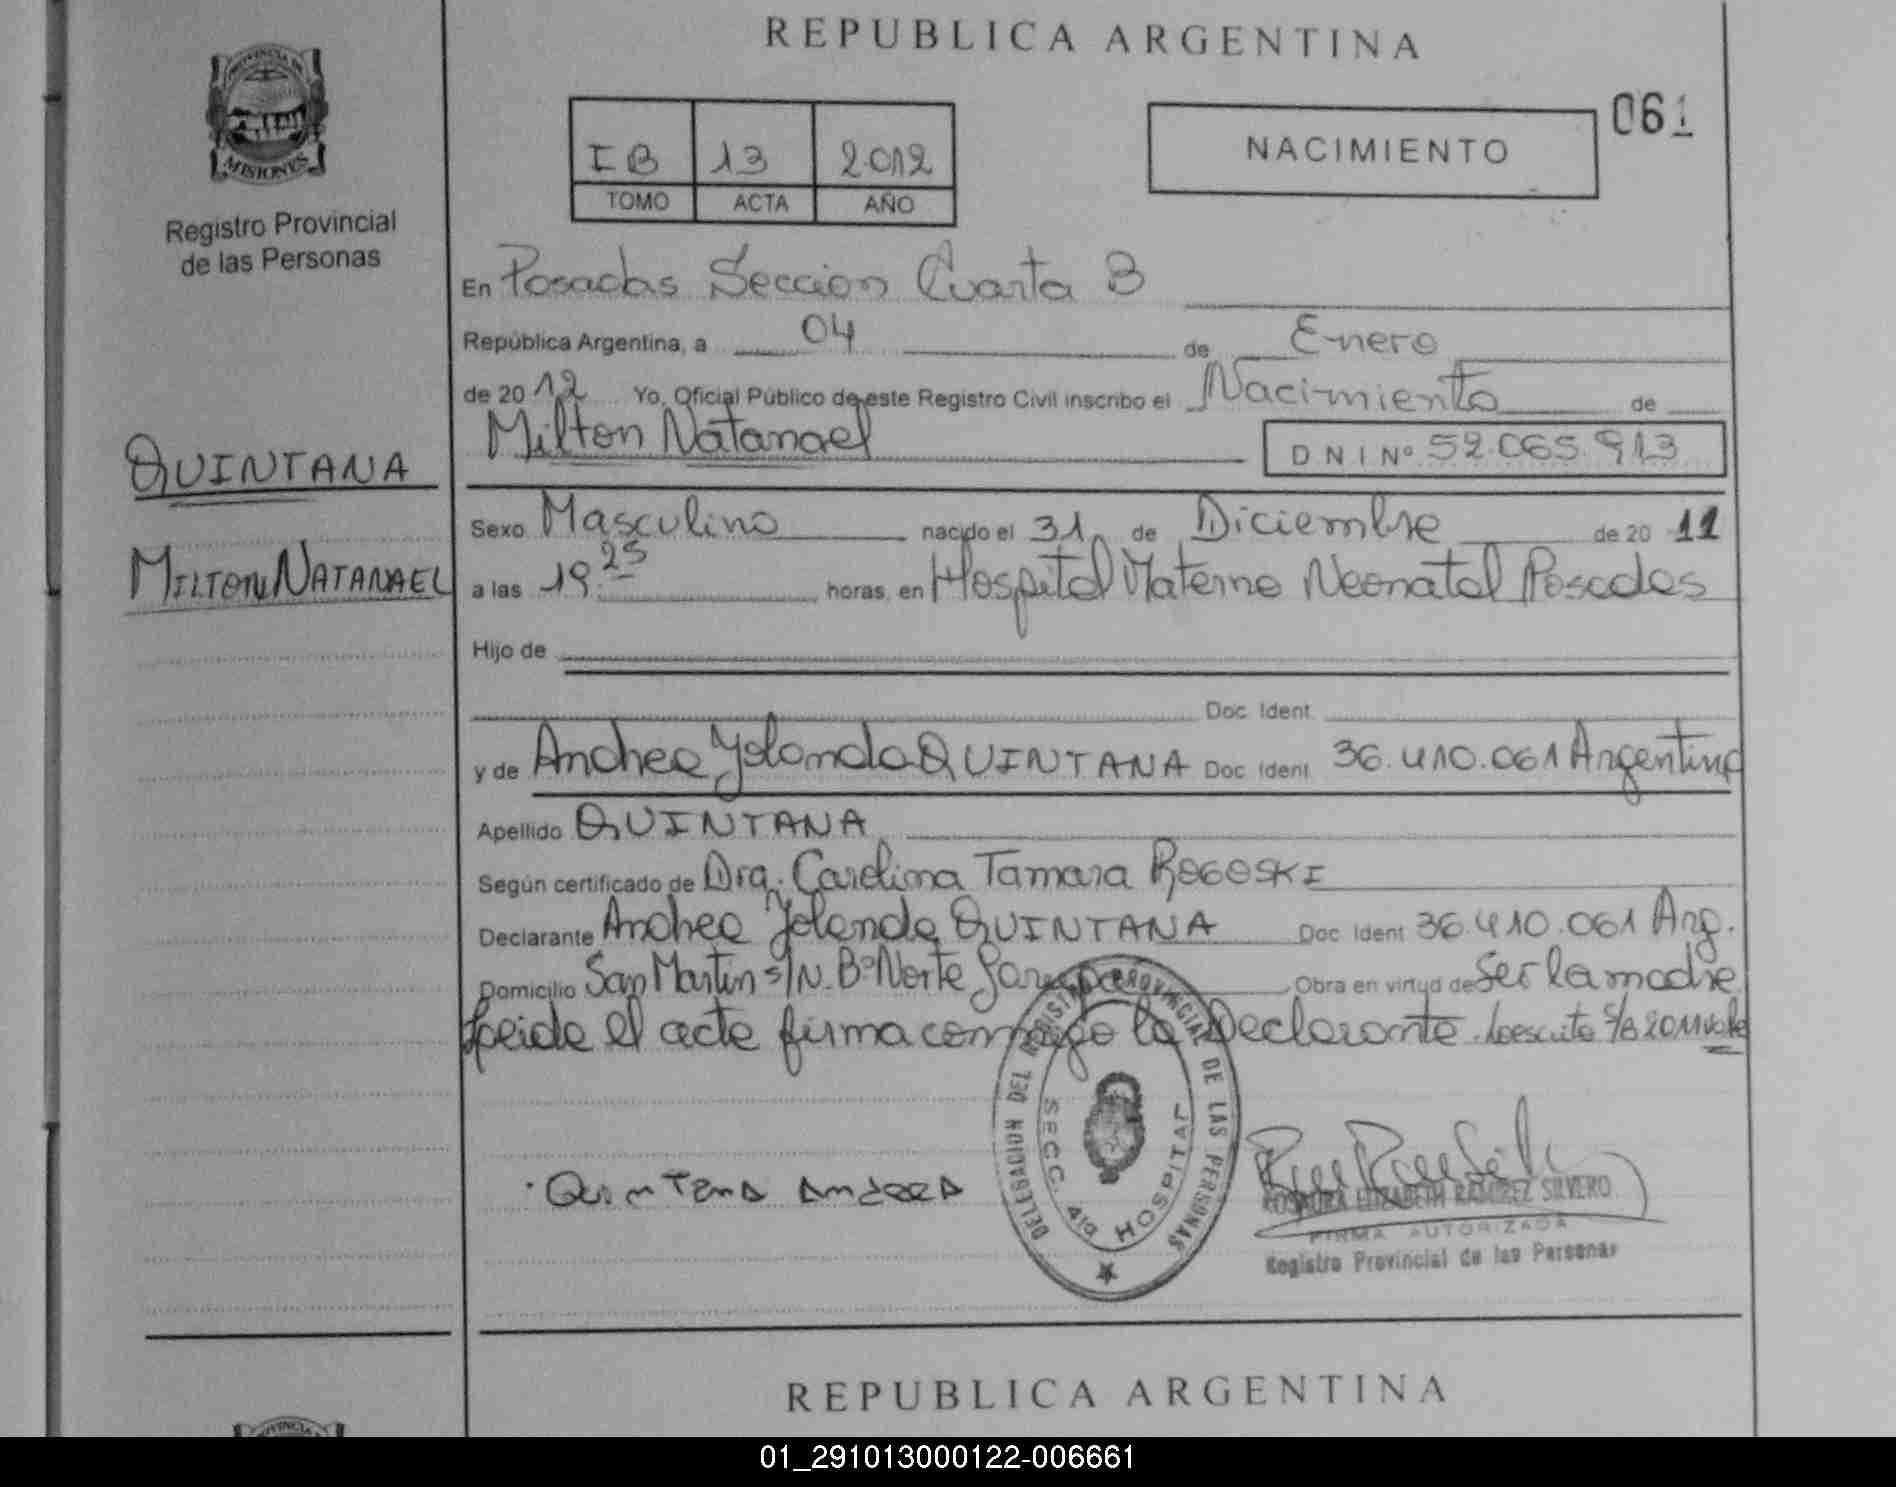 REPUBLICA ARGENTINA
061
PROVINCIA DE
MISIONES
Registro Provincial
de las Personas
IB 13 2012
TOMO ACTA AÑO
NACIMIENTO
En Posadas Seccion Cuarta B
República Argentina, a 04 de Enero
de 2012 Yo, Oficial Público de este Registro Civil inscribo el Nacimiento de
Milton Natanael DNI Nº 52.065.913
QUINTANA
MILTON NATANAEL
Sexo Masculino nacido el 31 de Diciembre de 20 11
a las 19.25 horas, en Hospital Materno Neonatal Posadas
Hijo de
Doc. Ident.
y de Andrea Yolanda QUINTANA Doc. Ident. 36.410.061 Argentina
Apellido QUINTANA
Según certificado de Dra. Carolina Tamara ROGOSKI
Declarante Andrea Yolanda QUINTANA Doc. Ident. 36.410.061 Arg.
Domicilio San Martin s/N. Bº Norte Garupa Obra en virtud de Ser la madre
Leida el acta firma conmigo la Declarante. S/B 2011 vale
DELEGACION DEL REGISTRO PROVINCIAL DE LAS PERSONAS
SECC. 4ta HOSPITAL
Quintana Andrea
ROSAURA ELIZABETH RAMIREZ SILVERO
FIRMA AUTORIZADA
Registro Provincial de las Personas
REPUBLICA ARGENTINA
01_291013000122-006661